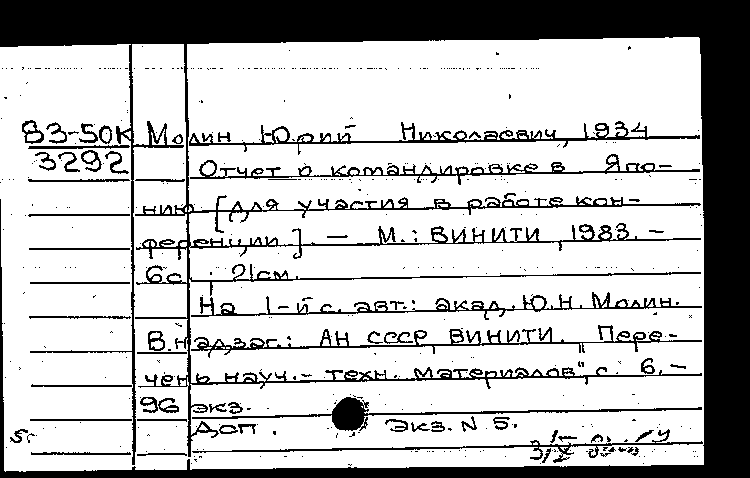 83-50К Молин, Юрий Николаевич, 1934
3292 Отчет о командировке в Япо-
нию [для участия в работе кон-
ференции]. — М.: ВИНИТИ, 1983. -
6с.; 21см.
На 1-й с. авт.: акад. Ю.Н. Молин.
В надзаг.: АН СССР, ВИНИТИ. "Пере-
чень науч.-техн. материалов", с. 6. -
96 экз.
Доп. Экз. N 5.